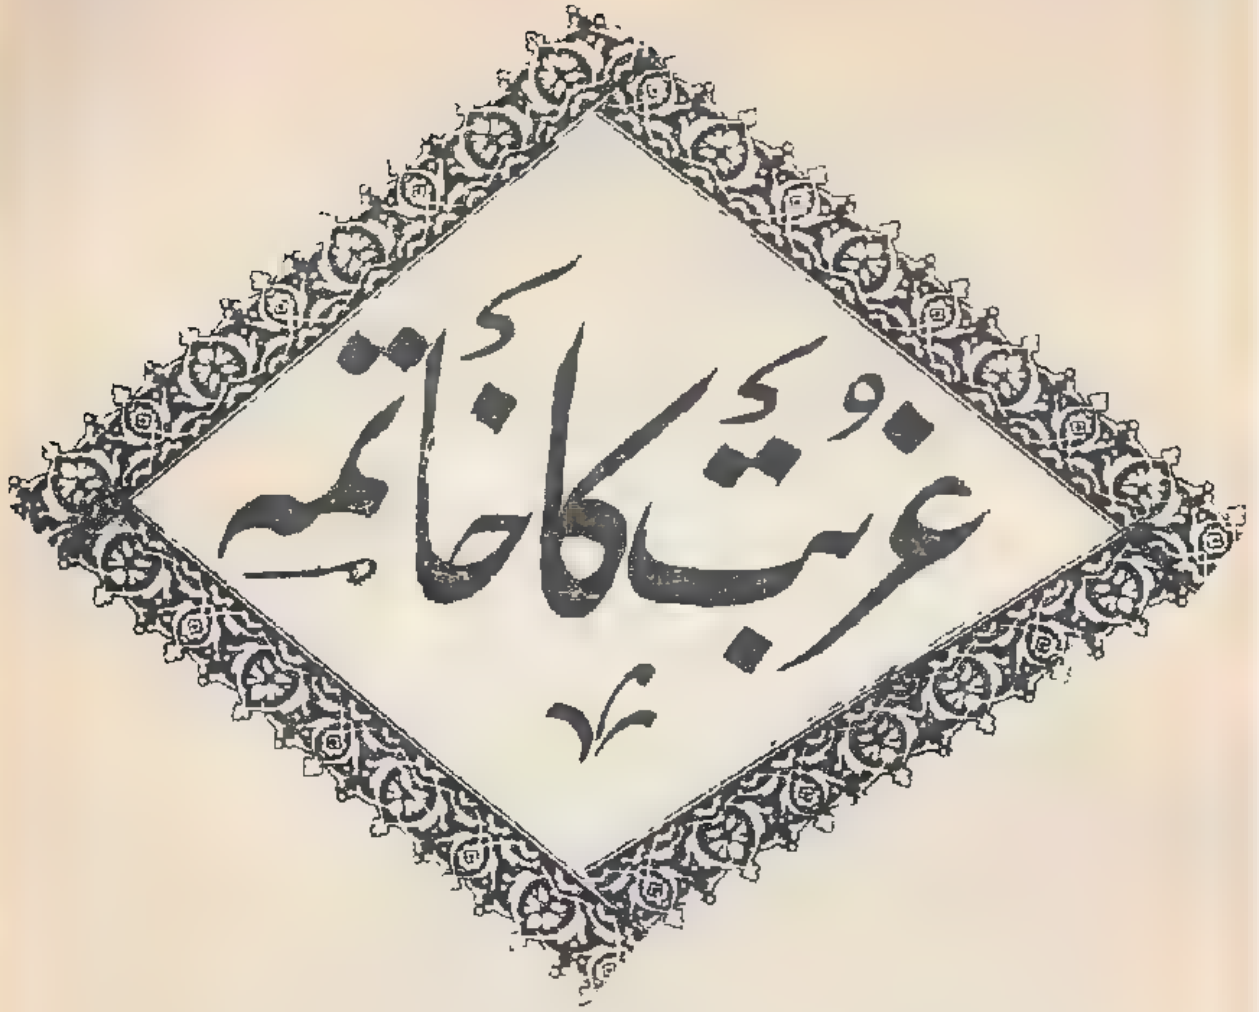 غُربت کا خاتمہ